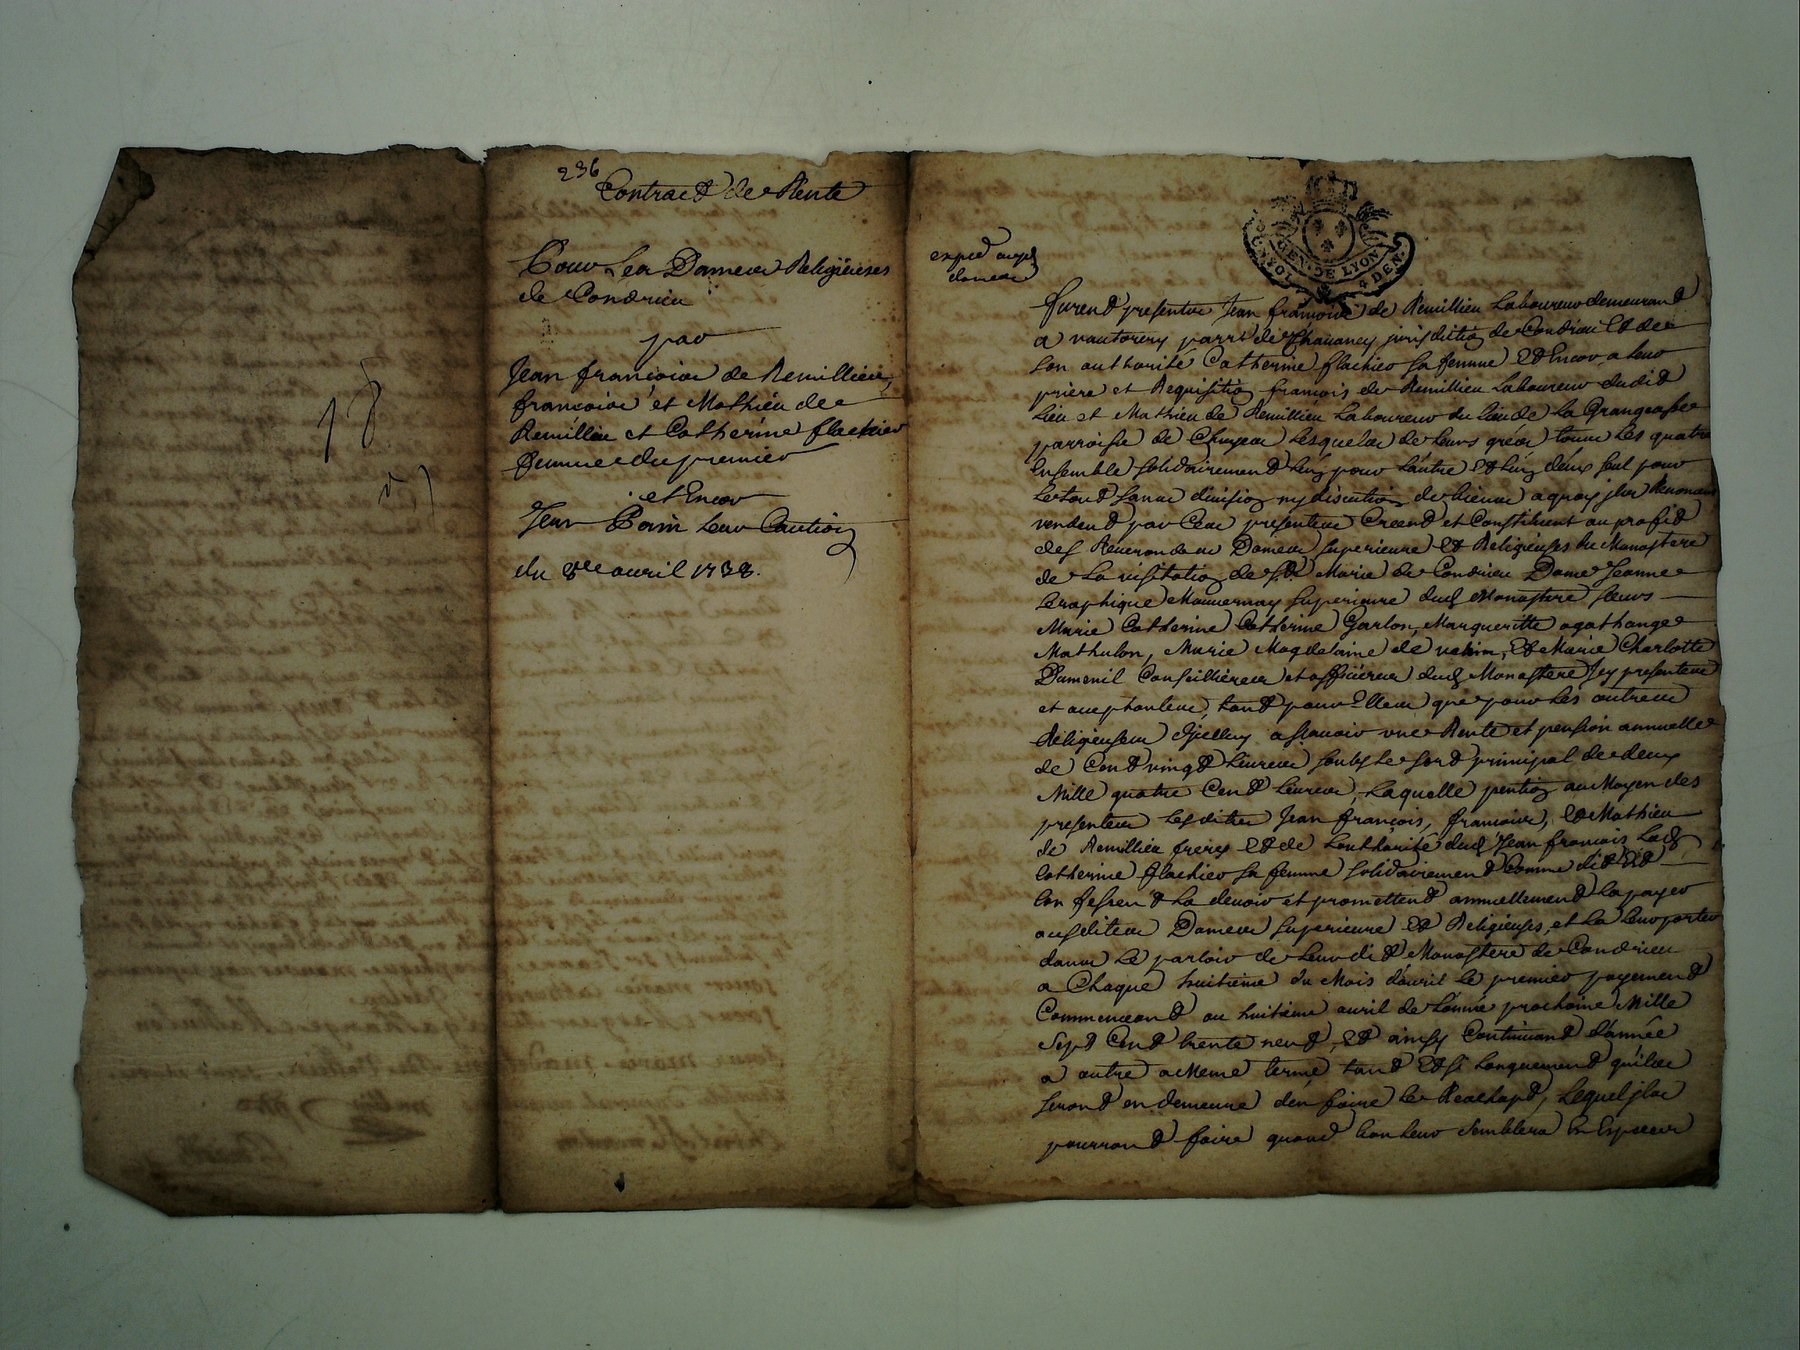 236
Contract de Rente
Pour Les Dames Religieuses
de Condrieu
par
Jean françois de Remillieu,
françois et Mathieu de
Remillieu et Catherine flachier
femme du premier
et Encor
Jean Pain leur Caution
du 8me auril 1738.
18
exped auxd
dames
GEN. DE LYON
4 DEN.
furent presents Jean françois de Remillieu Laboureur demeurant
a parr de Chauanay jurisdition de Condrieu Et de
son authorité Catherine flachier sa femme Et Encor a leur
prière et Requisition françois de Remillieu Laboureur dudit
Lieu et Mathieu de Remillieu Laboureur du lieu de La
parroisse de Lesquels de leurs gréés tous les quatre
Ensemble solidairement lun pour lautre Et lun deux seul pour
Le tout sans diuision ny discution de biens a quoy ils Renoncent
vendent par Ces presentes Creent et Constituent au profit
des Reuerendes Dames superieure Et Religieuses du Monastere
de La visitation de Ste Marie de Condrieu Dame Jeanne
Seraphique superieure dud Monastere sœurs
Marie Catherine Catherine Garlon, Marguerite agathange
Mathulon, Marie Magdelaine de Et Marie Charlotte
Dumenil Conseillières et officieres dud Monastere Icy presentes
et acceptantes, tant pour Elles que pour les autres
Religieuses dIcelluy assauoir vne Rente et pension annuelle
de Cent vingt liures soubs le sort principal de deux
Mille quatre Cent liures, Laquelle pention au Moyen des
presentes lesdits Jean françois, françois, et Mathieu
de Remillieu freres Et de Lauthorité dud Jean françois Lad
Catherine flachier sa femme solidairement Comme dit Est
Confessent La deuoir et promettent annuellement La payer
ausdites Dames superieure Et Religieuses, et La leur porter
dans Le parloir de leurdit Monastere de Condrieu
a Chaque huitieme du Mois dauril le premier payement
Commencant au huitieme auril de Lannée prochaine Mille
Sept Cent trente neuf, Et ainsy Continuant dannée
a autre a Meme terme tant Et si Longuement quils
seront en demeure den faire Le Reachapt, Lequel ils
pourront faire quand bon leur Semblera En Especes